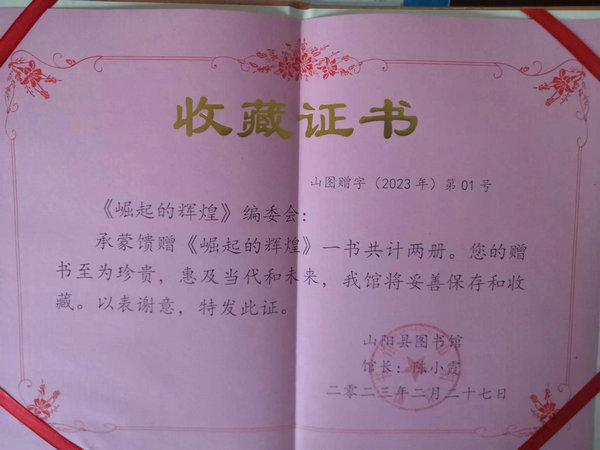 收藏证书
山图赠字（2023年）第01号
《崛起的辉煌》编委会：
承蒙馈赠《崛起的辉煌》一书共计两册。您的赠
书至为珍贵，惠及当代和未来，我馆将妥善保存和收
藏。以表谢意，特发此证。
山阳县图书馆
馆长：陈小霞
二零二三年二月二十七日